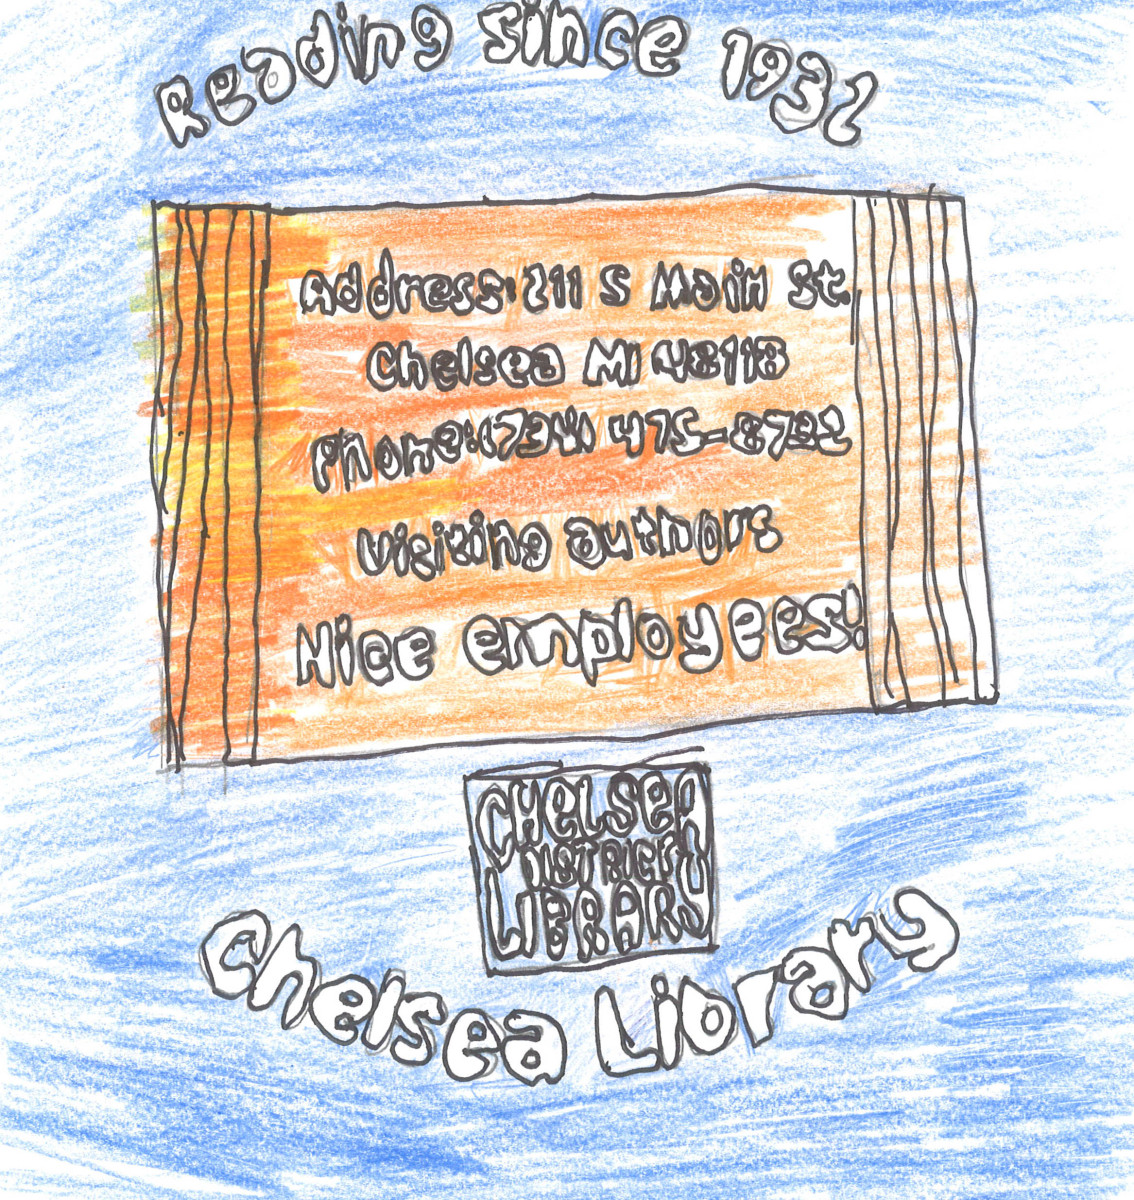 Reading since 1932
Address: 221 S Main St.
Chelsea MI 48118
Phone: (734) 475-8732
Visiting authors
Nice employees!
CHELSEA
DISTRICT
LIBRARY
Chelsea Library